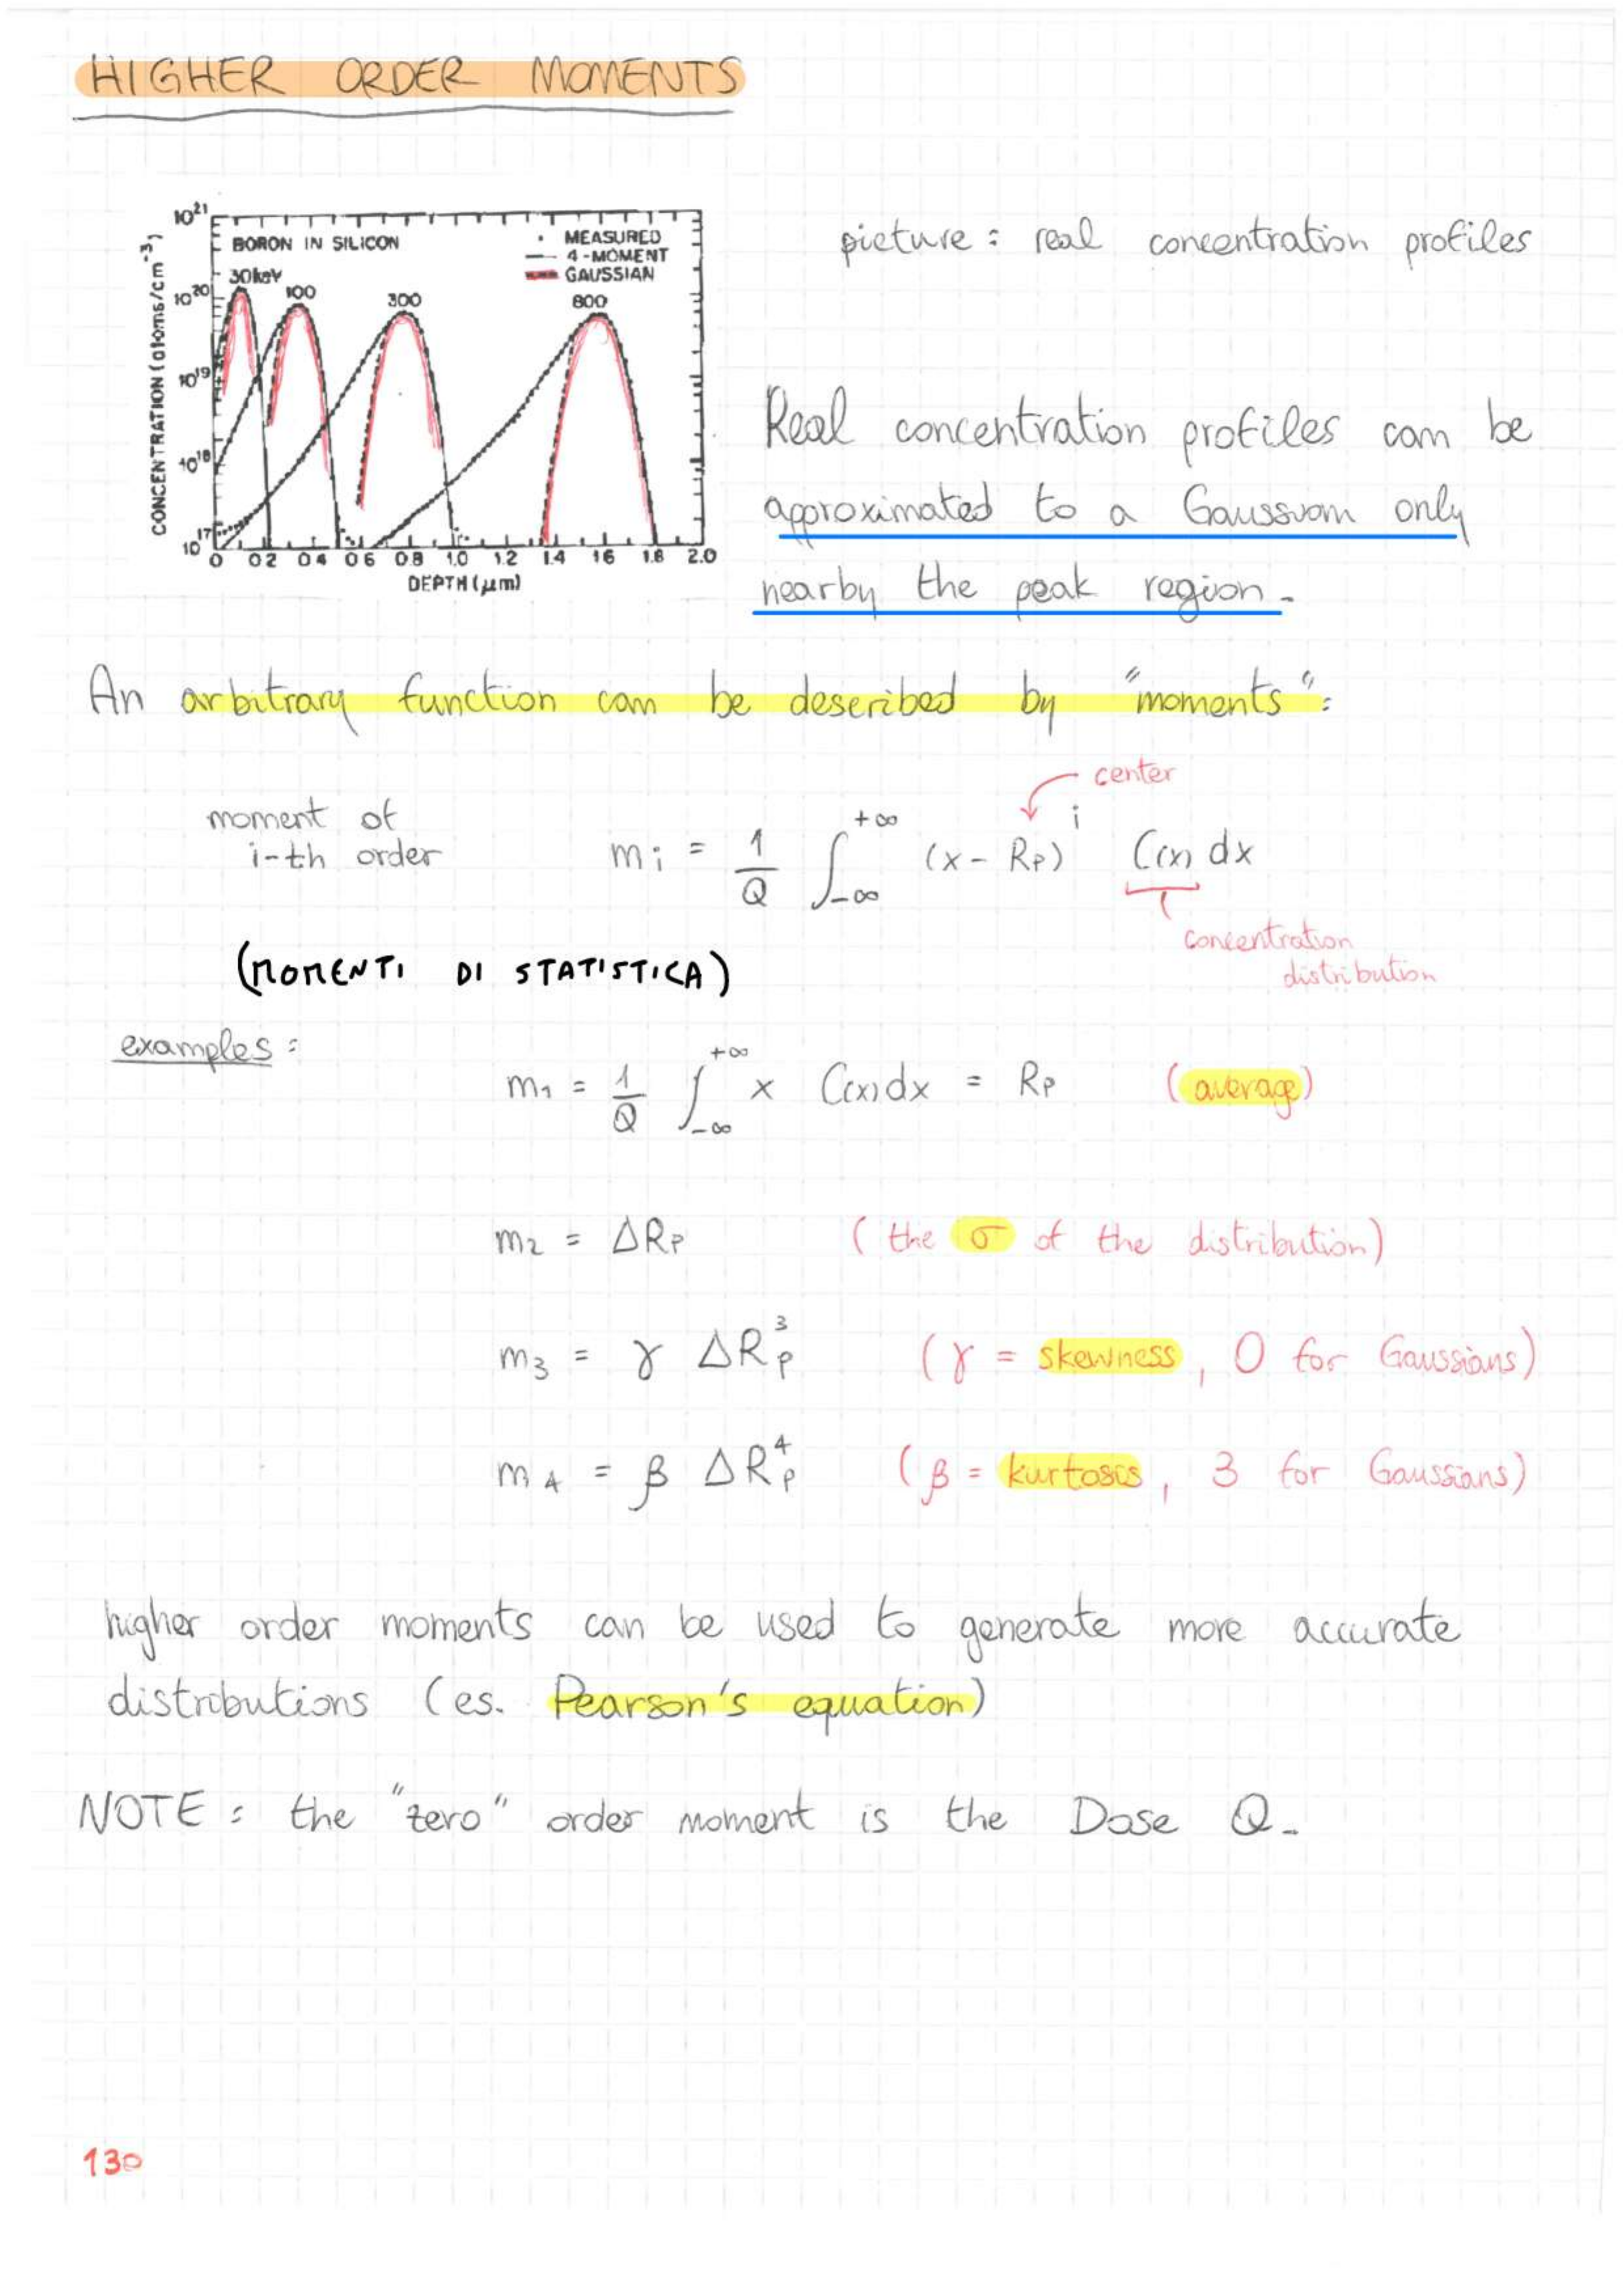 HIGHER ORDER MOMENTS
10²¹
BORON IN SILICON
MEASURED
4-MOMENT
GAUSSIAN
30keV
100
300
800
10²⁰
10¹⁹
10¹⁸
10¹⁷
0 0.2 0.4 0.6 0.8 1.0 1.2 1.4 1.6 1.8 2.0
DEPTH (μm)
CONCENTRATION (atoms/cm⁻³)
picture : real concentration profiles
Real concentration profiles can be
approximated to a Gaussian only
nearby the peak region.
An arbitrary function can be described by "moments":
center
moment of
i-th order
mᵢ = 1/Q ∫₋∞^+∞ (x - Rₚ)ⁱ C(x) dx
concentration
distribution
(MOMENTI DI STATISTICA)
examples :
m₁ = 1/Q ∫₋∞^+∞ x C(x) dx = Rₚ (average)
m₂ = ΔRₚ (the σ of the distribution)
m₃ = γ ΔRₚ³ (γ = skewness, 0 for Gaussians)
m₄ = β ΔRₚ⁴ (β = kurtosis, 3 for Gaussians)
higher order moments can be used to generate more accurate
distributions (es. Pearson's equation)
NOTE : the "zero" order moment is the Dose Q.
130